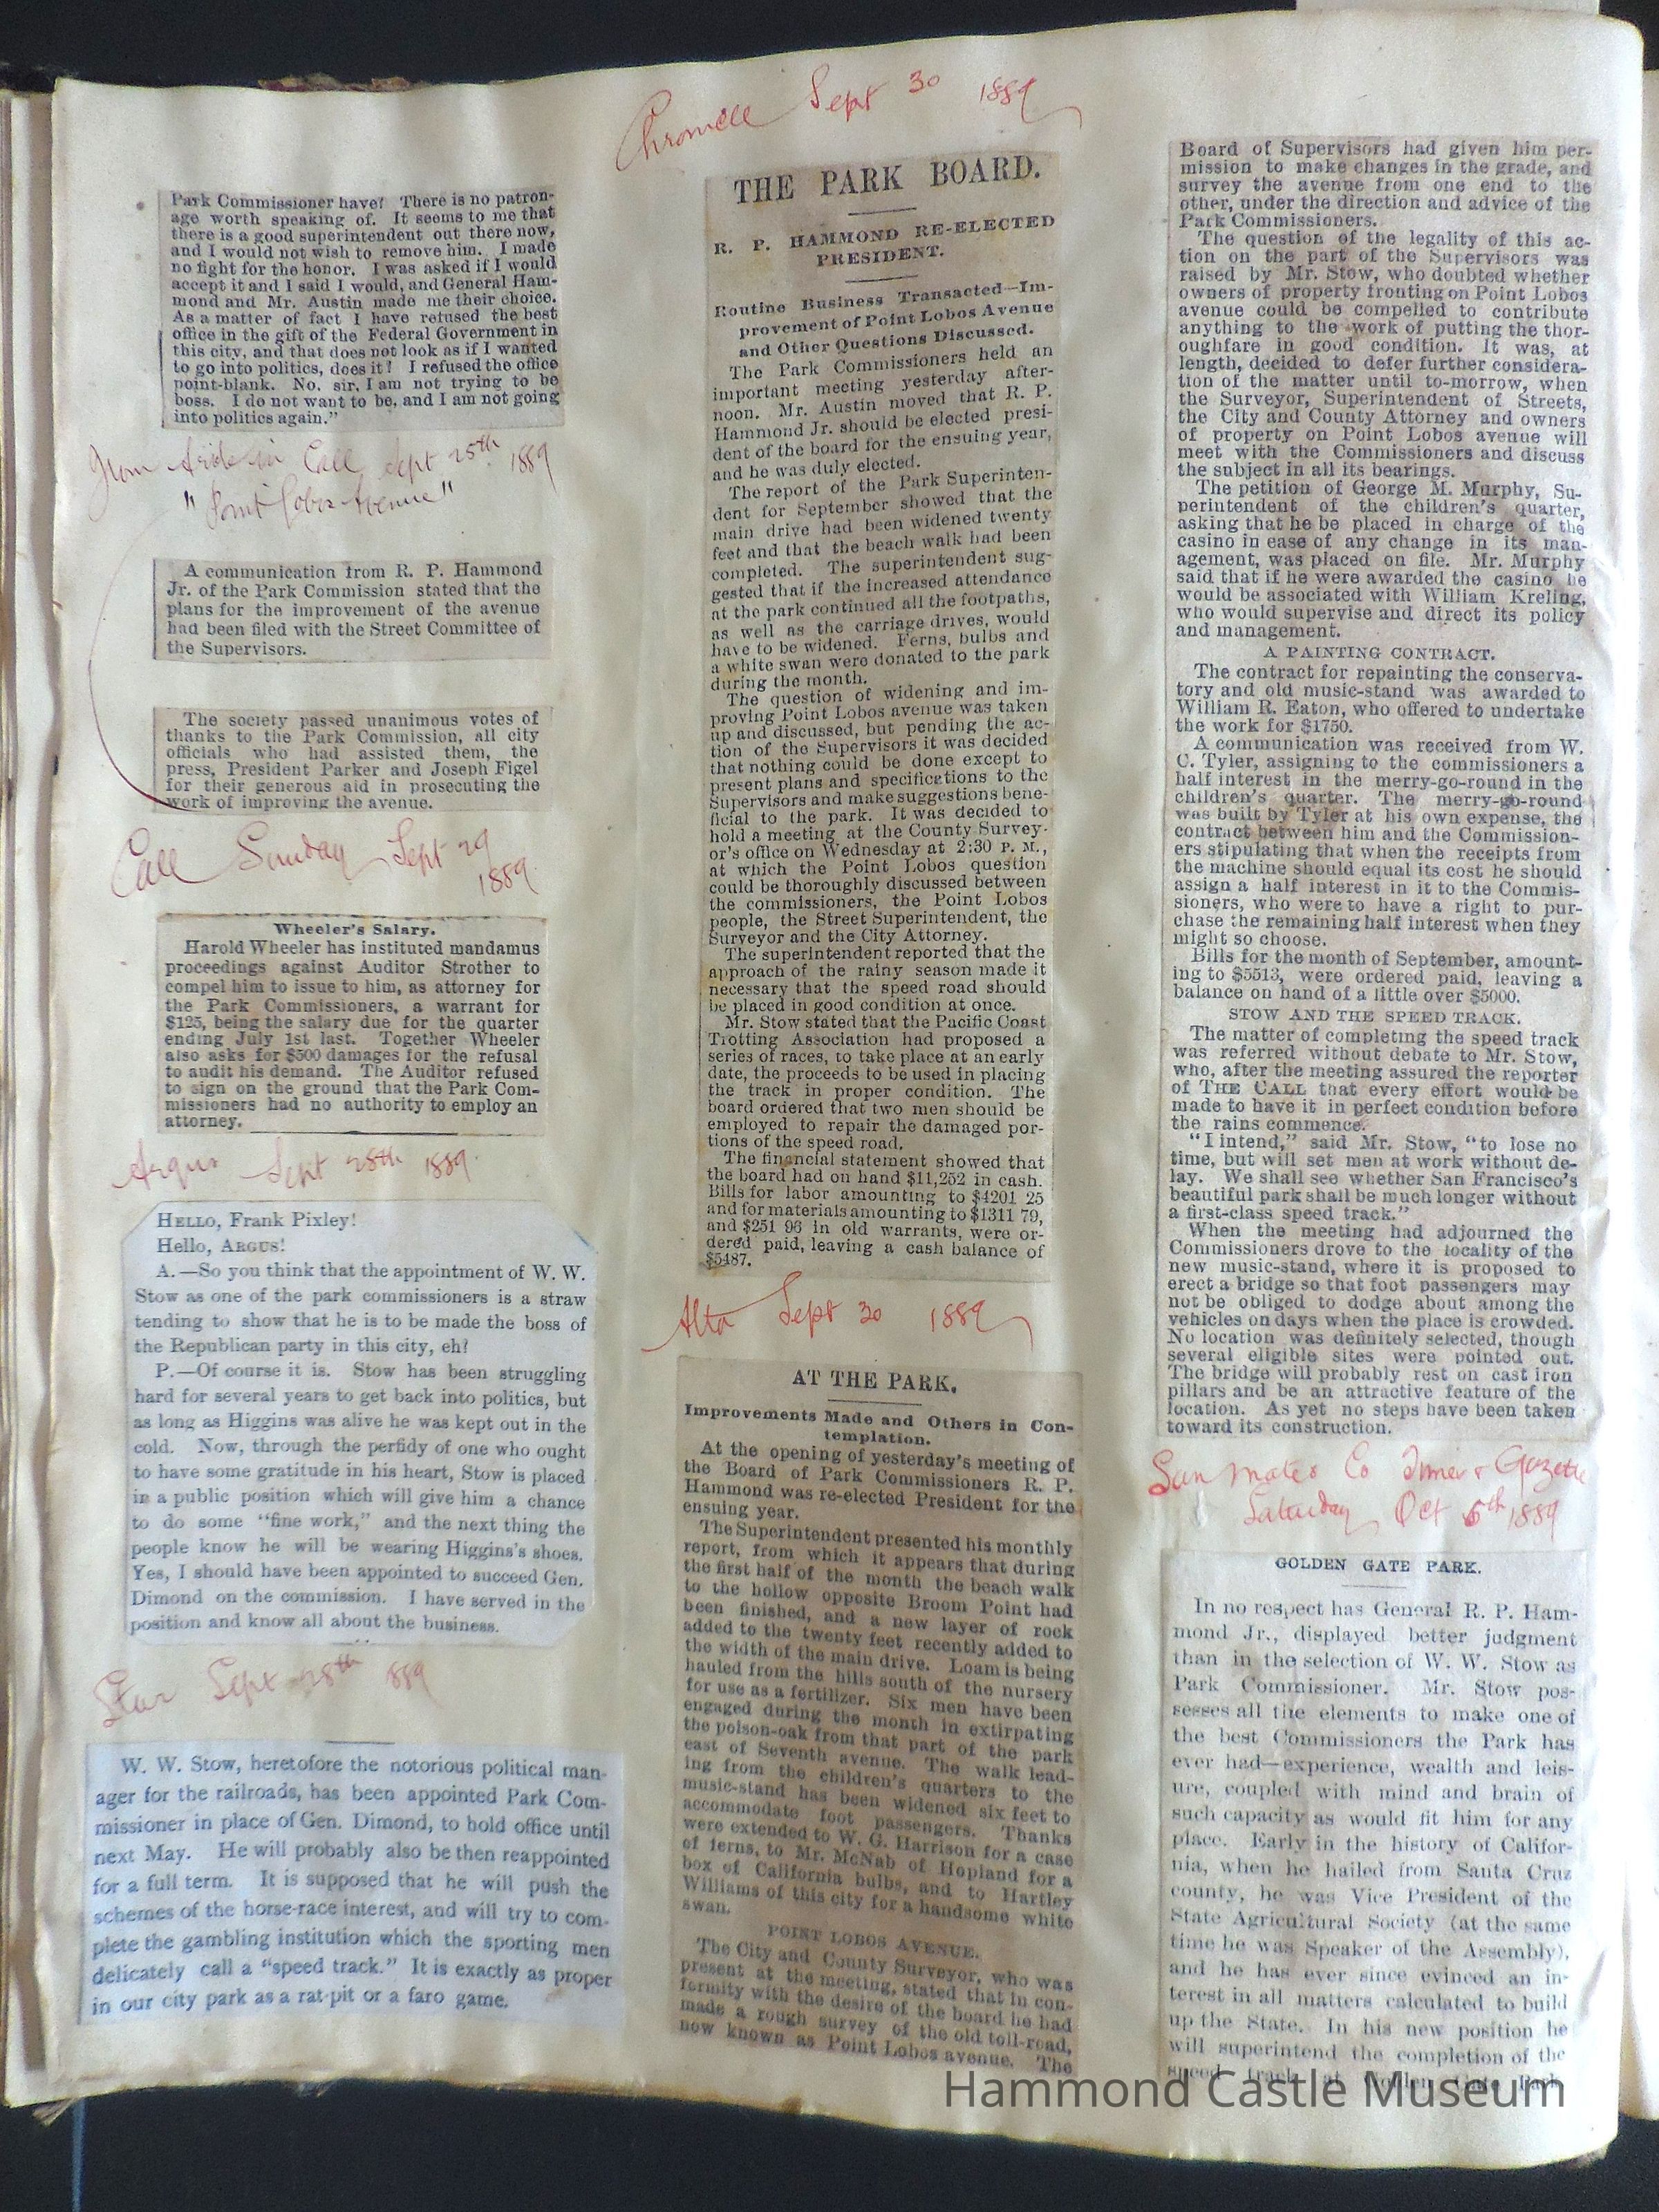 Park Commissioner have? There is no patron-
age worth speaking of. It seems to me that
there is a good superintendent out there now,
and I would not wish to remove him. I made
no fight for the honor. I was asked if I would
accept it and I said I would, and General Ham-
mond and Mr. Austin made me their choice.
As a matter of fact I have refused the best
office in the gift of the Federal Government in
this city, and that does not look as if I wanted
to go into politics, does it? I refused the office
point-blank. No, sir, I am not trying to be
boss. I do not want to be, and I am not going
into politics again."
from Article in Call Sept 25th 1889
"Point Lobos Avenue"
A communication from R. P. Hammond
Jr. of the Park Commission stated that the
plans for the improvement of the avenue
had been filed with the Street Committee of
the Supervisors.
The society passed unanimous votes of
thanks to the Park Commission, all city
officials who had assisted them, the
press, President Parker and Joseph Figel
for their generous aid in prosecuting the
work of improving the avenue.
Call Sunday Sept 29
1889
Wheeler's Salary.
Harold Wheeler has instituted mandamus
proceedings against Auditor Strother to
compel him to issue to him, as attorney for
the Park Commissioners, a warrant for
$125, being the salary due for the quarter
ending July 1st last. Together Wheeler
also asks for $500 damages for the refusal
to audit his demand. The Auditor refused
to sign on the ground that the Park Com-
missioners had no authority to employ an
attorney.
Argus Sept 28th 1889
HELLO, Frank Pixley!
Hello, ARGUS!
A.—So you think that the appointment of W. W.
Stow as one of the park commissioners is a straw
tending to show that he is to be made the boss of
the Republican party in this city, eh?
P.—Of course it is. Stow has been struggling
hard for several years to get back into politics, but
as long as Higgins was alive he was kept out in the
cold. Now, through the perfidy of one who ought
to have some gratitude in his heart, Stow is placed
in a public position which will give him a chance
to do some "fine work," and the next thing the
people know he will be wearing Higgins's shoes.
Yes, I should have been appointed to succeed Gen.
Dimond on the commission. I have served in the
position and know all about the business.
Star Sept 28th 1889
W. W. Stow, heretofore the notorious political man-
ager for the railroads, has been appointed Park Com-
missioner in place of Gen. Dimond, to hold office until
next May. He will probably also be then reappointed
for a full term. It is supposed that he will push the
schemes of the horse-race interest, and will try to com-
plete the gambling institution which the sporting men
delicately call a "speed track." It is exactly as proper
in our city park as a rat-pit or a faro game.
Chronicle Sept 30 1889
THE PARK BOARD.
R. P. HAMMOND RE-ELECTED
PRESIDENT.
Routine Business Transacted—Im-
provement of Point Lobos Avenue
and Other Questions Discussed.
The Park Commissioners held an
important meeting yesterday after-
noon. Mr. Austin moved that R. P.
Hammond Jr. should be elected presi-
dent of the board for the ensuing year,
and he was duly elected.
The report of the Park Superinten-
dent for September showed that the
main drive had been widened twenty
feet and that the beach walk had been
completed. The superintendent sug-
gested that if the increased attendance
at the park continued all the footpaths,
as well as the carriage drives, would
have to be widened. Ferns, bulbs and
a white swan were donated to the park
during the month.
The question of widening and im-
proving Point Lobos avenue was taken
up and discussed, but pending the ac-
tion of the Supervisors it was decided
that nothing could be done except to
present plans and specifications to the
Supervisors and make suggestions bene-
ficial to the park. It was decided to
hold a meeting at the County Survey-
or's office on Wednesday at 2:30 P. M.,
at which the Point Lobos question
could be thoroughly discussed between
the commissioners, the Point Lobos
people, the Street Superintendent, the
Surveyor and the City Attorney.
The superintendent reported that the
approach of the rainy season made it
necessary that the speed road should
be placed in good condition at once.
Mr. Stow stated that the Pacific Coast
Trotting Association had proposed a
series of races, to take place at an early
date, the proceeds to be used in placing
the track in proper condition. The
board ordered that two men should be
employed to repair the damaged por-
tions of the speed road.
The financial statement showed that
the board had on hand $11,252 in cash.
Bills for labor amounting to $4201 25
and for materials amounting to $1311 79,
and $251 96 in old warrants, were or-
dered paid, leaving a cash balance of
$5487.
Alta Sept 30 1889
AT THE PARK.
Improvements Made and Others in Con-
templation.
At the opening of yesterday's meeting of
the Board of Park Commissioners R. P.
Hammond was re-elected President for the
ensuing year.
The Superintendent presented his monthly
report, from which it appears that during
the first half of the month the beach walk
to the hollow opposite Broom Point had
been finished, and a new layer of rock
added to the twenty feet recently added to
the width of the main drive. Loam is being
hauled from the hills south of the nursery
for use as a fertilizer. Six men have been
engaged during the month in extirpating
the poison-oak from that part of the park
east of Seventh avenue. The walk lead-
ing from the children's quarters to the
music-stand has been widened six feet to
accommodate foot passengers. Thanks
were extended to W. G. Harrison for a case
of ferns, to Mr. McNab of Hopland for a
box of California bulbs, and to Hartley
Williams of this city for a handsome white
swan.
POINT LOBOS AVENUE.
The City and County Surveyor, who was
present at the meeting, stated that in con-
formity with the desire of the board he had
made a rough survey of the old toll-road,
now known as Point Lobos avenue. The
Board of Supervisors had given him per-
mission to make changes in the grade, and
survey the avenue from one end to the
other, under the direction and advice of the
Park Commissioners.
The question of the legality of this ac-
tion on the part of the Supervisors was
raised by Mr. Stow, who doubted whether
owners of property fronting on Point Lobos
avenue could be compelled to contribute
anything to the work of putting the thor-
oughfare in good condition. It was, at
length, decided to defer further considera-
tion of the matter until to-morrow, when
the Surveyor, Superintendent of Streets,
the City and County Attorney and owners
of property on Point Lobos avenue will
meet with the Commissioners and discuss
the subject in all its bearings.
The petition of George M. Murphy, Su-
perintendent of the children's quarter,
asking that he be placed in charge of the
casino in ease of any change in its man-
agement, was placed on file. Mr. Murphy
said that if he were awarded the casino he
would be associated with William Kreling,
who would supervise and direct its policy
and management.
A PAINTING CONTRACT.
The contract for repainting the conserva-
tory and old music-stand was awarded to
William R. Eaton, who offered to undertake
the work for $1750.
A communication was received from W.
C. Tyler, assigning to the commissioners a
half interest in the merry-go-round in the
children's quarter. The merry-go-round
was built by Tyler at his own expense, the
contract between him and the Commission-
ers stipulating that when the receipts from
the machine should equal its cost he should
assign a half interest in it to the Commis-
sioners, who were to have a right to pur-
chase the remaining half interest when they
might so choose.
Bills for the month of September, amount-
ing to $5513, were ordered paid, leaving a
balance on hand of a little over $5000.
STOW AND THE SPEED TRACK.
The matter of completing the speed track
was referred without debate to Mr. Stow,
who, after the meeting assured the reporter
of THE CALL that every effort would be
made to have it in perfect condition before
the rains commence.
"I intend," said Mr. Stow, "to lose no
time, but will set men at work without de-
lay. We shall see whether San Francisco's
beautiful park shall be much longer without
a first-class speed track."
When the meeting had adjourned the
Commissioners drove to the locality of the
new music-stand, where it is proposed to
erect a bridge so that foot passengers may
not be obliged to dodge about among the
vehicles on days when the place is crowded.
No location was definitely selected, though
several eligible sites were pointed out.
The bridge will probably rest on cast iron
pillars and be an attractive feature of the
location. As yet no steps have been taken
toward its construction.
San Mateo Co Times & Gazette
Saturday Oct 5th 1889
GOLDEN GATE PARK.
In no respect has General R. P. Ham-
mond Jr., displayed better judgment
than in the selection of W. W. Stow as
Park Commissioner. Mr. Stow pos-
sesses all the elements to make one of
the best Commissioners the Park has
ever had—experience, wealth and leis-
ure, coupled with mind and brain of
such capacity as would fit him for any
place. Early in the history of Califor-
nia, when he hailed from Santa Cruz
county, he was Vice President of the
State Agricultural Society (at the same
time he was Speaker of the Assembly),
and he has ever since evinced an in-
terest in all matters calculated to build
up the State. In his new position he
will superintend the completion of the
speed track at Golden Gate Park
Hammond Castle Museum